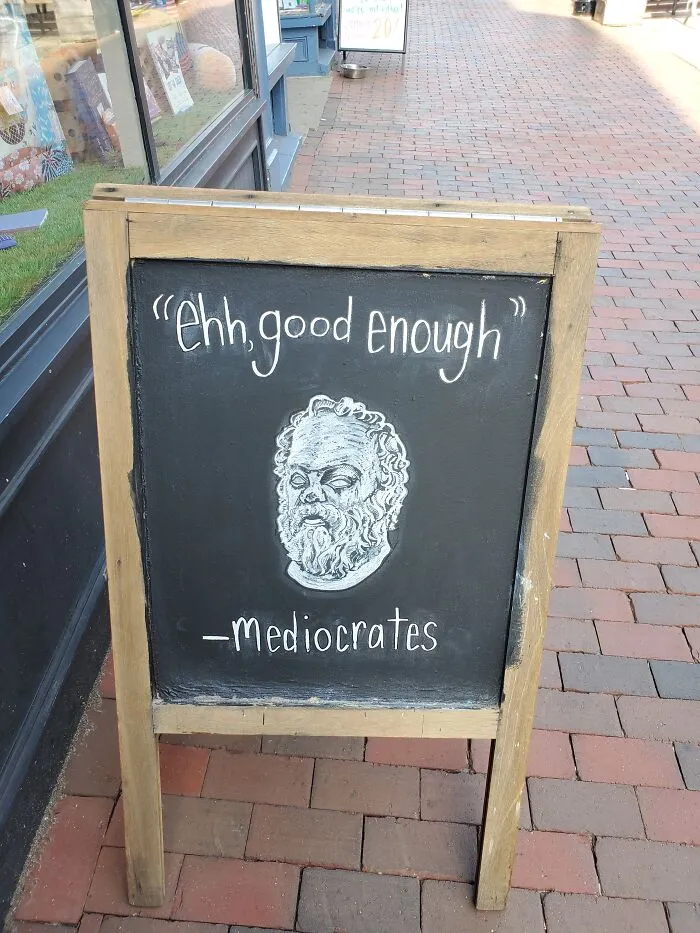 "ehh, good enough"
–mediocrates